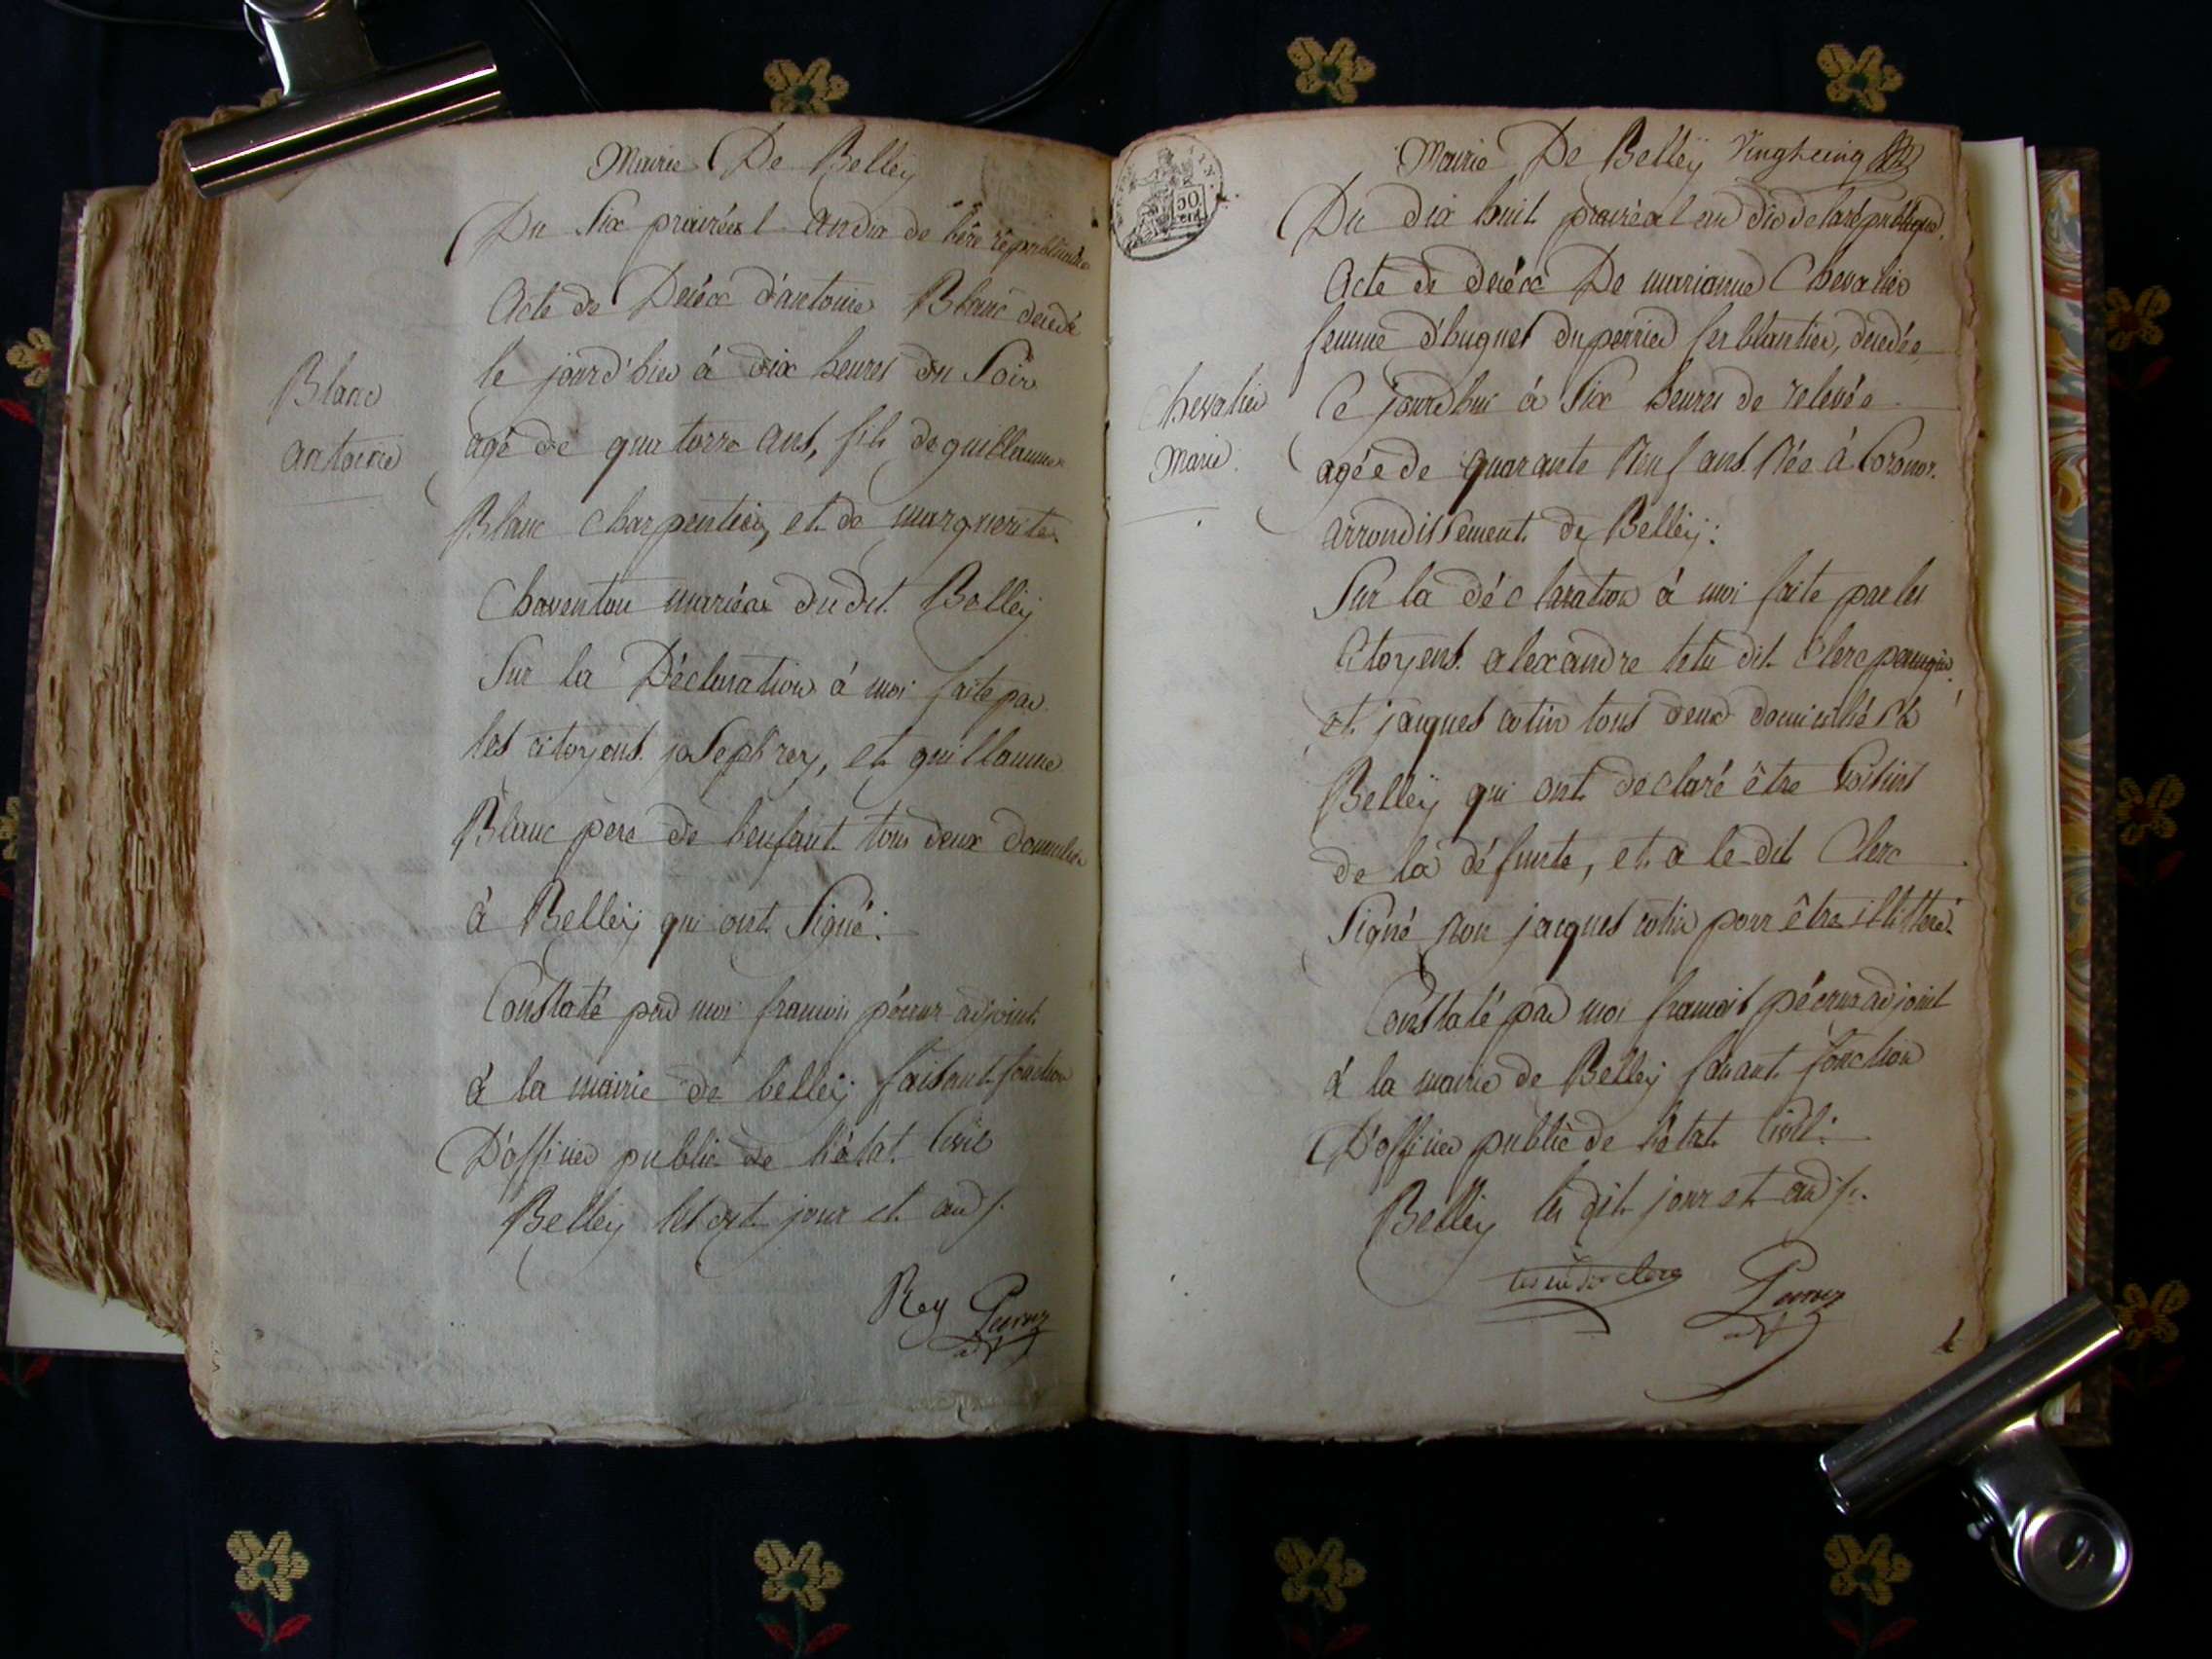 Mairie De Belley
Du Six prairéal an dix de l'ère républicaine
Acte de Décéx d'antoine Blanc décédé
Blanc
antoine
le jour d'hier à dix heures du Soir
agé de quatorze ans, fils de guillaume
Blanc charpentier, et de marguerite
Chaventou mariéx dudit Belley
Sur la Déclaration à moi faite par
les citoyens joseph rey, et guillaume
Blanc pere de l'enfant tous deux domicilié
à Belley qui ont Signé:
Constaté par moi françois pécuux adjoint
à la mairie de belley faisant fonction
D'officier public de l'état Civil
Belley les dit jour et an
Rey
Mairie De Belleÿ Vingt cinq
50
Du dix huit prairéal an dix de la république
Acte de décéx De marianne Chevalier
femme d'hugues duperrier ferblantier, décédée
Chevalier
Marie
Ce jourdhui à Six heures de relevée
agée de quarante Neuf ans Née à
arrondissement de Belley:
Sur la déclaration à moi faite par les
Citoyens alexandre tetu dit Clerc
et jacques cotin tous deux domiciliés à
Belleÿ qui ont déclaré être Voisins
de la défunte, et a le dit Clerc
Signé Non jacques cotin pour être illitteré
Constaté par moi françois pécuux adjoint
à la mairie de Belley faisant fonction
D'officier public de l'état Civil:
Belley les dit jour et an
clerc